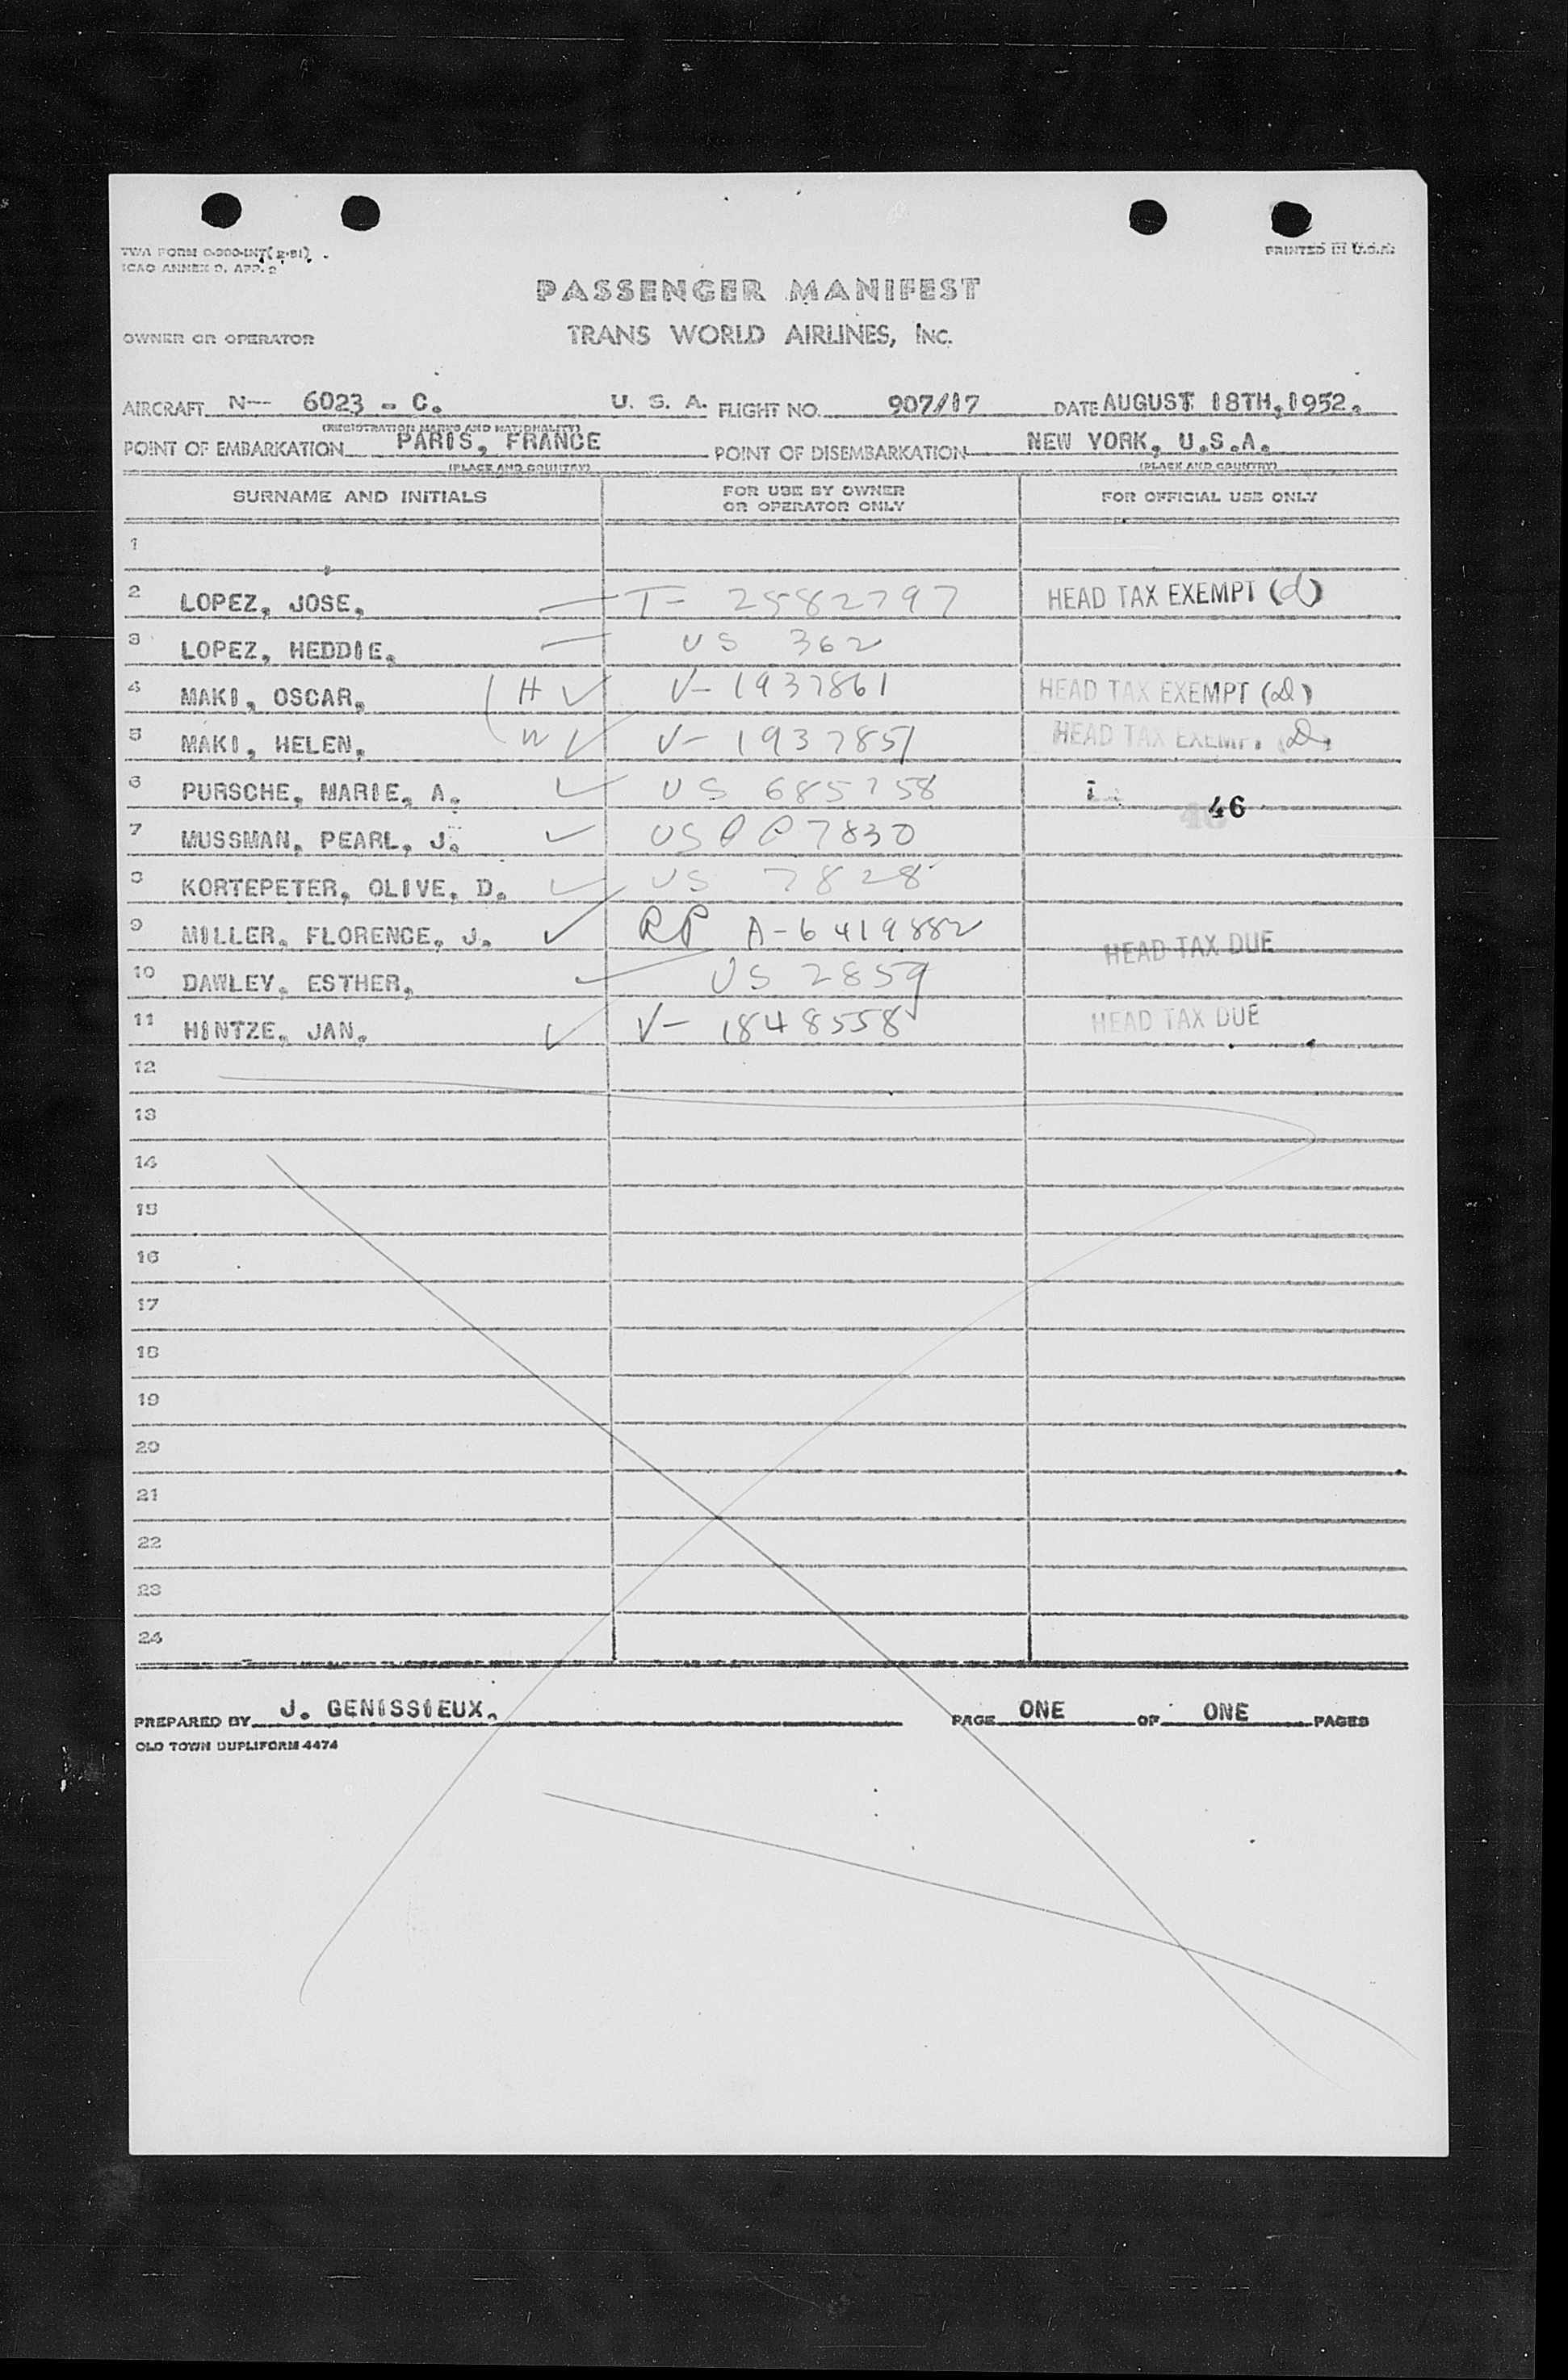 TWA FORM O-300-INT( 2-51)
ICAO ANNEX 9, APP. 2
PRINTED IN U.S.A.
PASSENGER MANIFEST
OWNER OR OPERATOR TRANS WORLD AIRLINES, Inc.
AIRCRAFT N-- 6023 - C. U. S. A. FLIGHT NO. 907/17 DATE AUGUST 18TH, 1952.
(REGISTRATION MARKS AND NATIONALITY)
POINT OF EMBARKATION PARIS, FRANCE POINT OF DISEMBARKATION NEW YORK, U.S.A.
(PLACE AND COUNTRY) (PLACE AND COUNTRY)
SURNAME AND INITIALS FOR USE BY OWNER OR OPERATOR ONLY FOR OFFICIAL USE ONLY
1
2 LOPEZ, JOSE, T- 2582797 HEAD TAX EXEMPT (d)
3 LOPEZ, HEDDIE, US 362
4 MAKI, OSCAR, H V- 1937861 HEAD TAX EXEMPT (D)
5 MAKI, HELEN, W V- 1937851 HEAD TAX EXEMPT (D)
6 PURSCHE, MARIE, A. US 685758
46
7 MUSSMAN, PEARL, J. US PP 7830
8 KORTEPETER, OLIVE, D. US 7828
9 MILLER, FLORENCE, J. RP A-6419882 HEAD TAX DUE
10 DAWLEY, ESTHER, US 2859
11 HINTZE, JAN, V- 1848558 HEAD TAX DUE
12
13
14
15
16
17
18
19
20
21
22
23
24
PREPARED BY J. GENISSIEUX. PAGE ONE OF ONE PAGES
OLD TOWN DUPLIFORM 4474